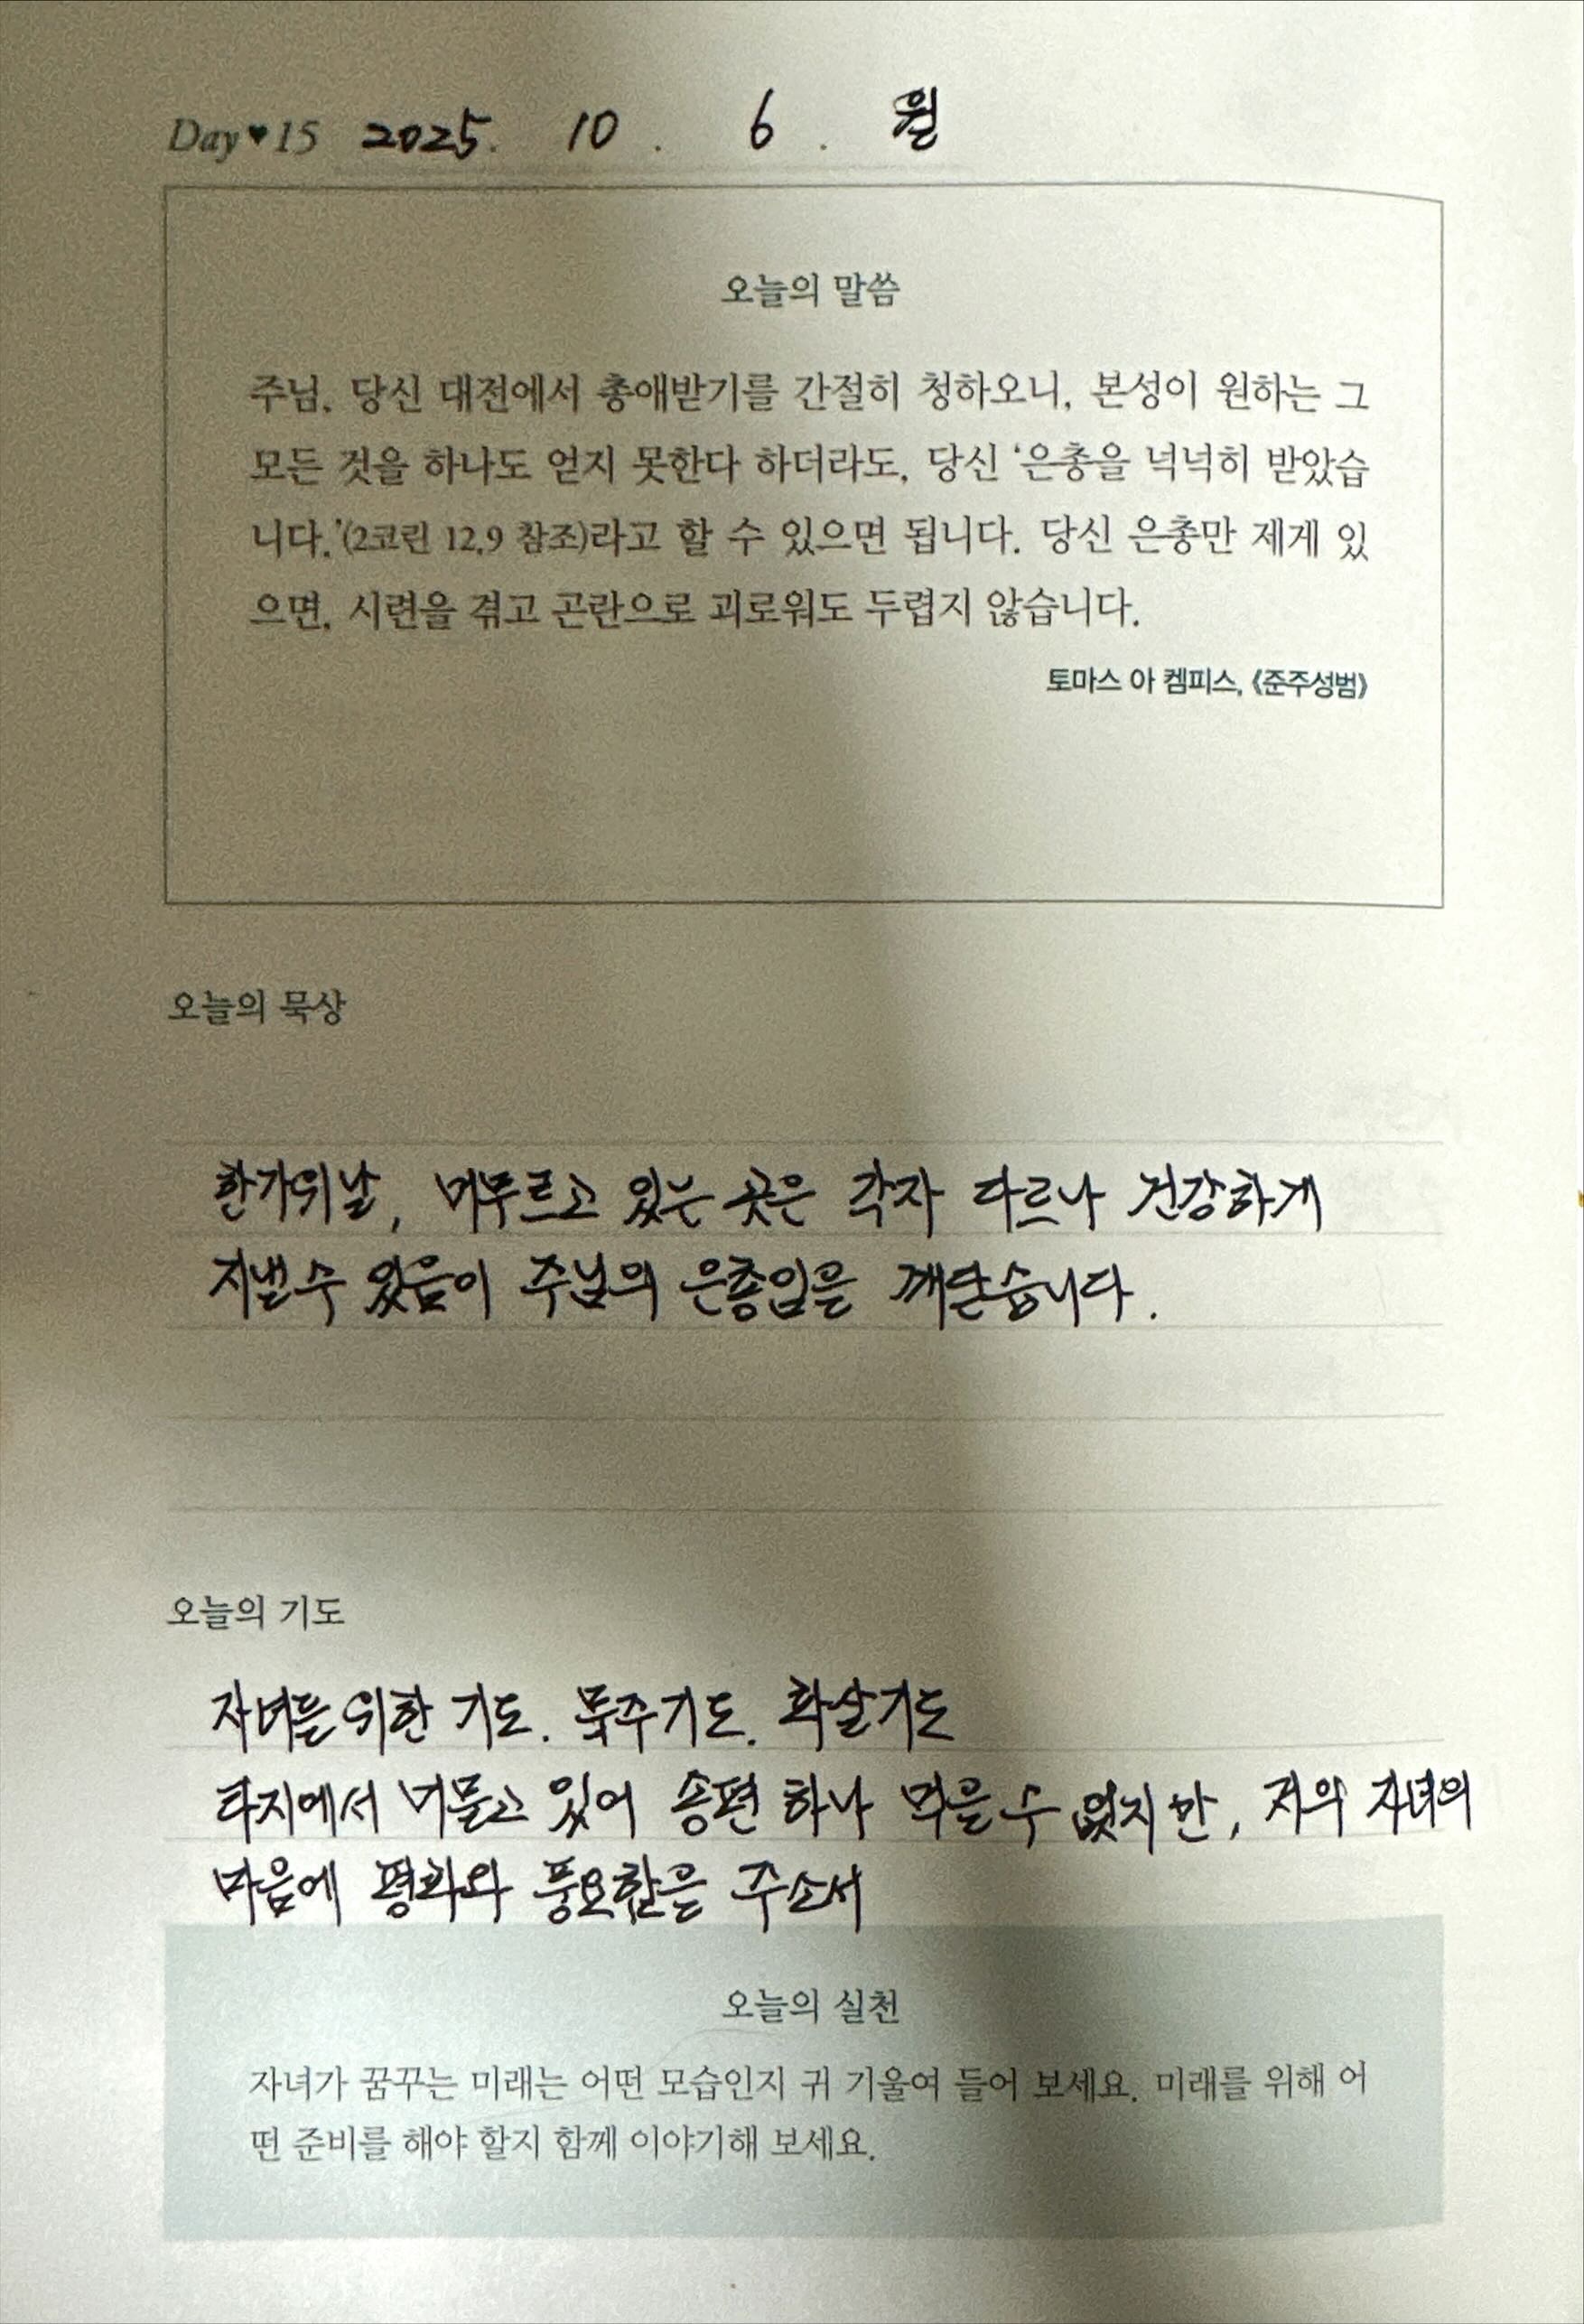 Day♥15 2025. 10. 6. 월
오늘의 말씀
주님, 당신 대전에서 총애받기를 간절히 청하오니, 본성이 원하는 그
모든 것을 하나도 얻지 못한다 하더라도, 당신 ‘은총을 넉넉히 받았습
니다.’(2코린 12,9 참조)라고 할 수 있으면 됩니다. 당신 은총만 제게 있
으면, 시련을 겪고 곤란으로 괴로워도 두렵지 않습니다.
토마스 아 켐피스, 《준주성범》
오늘의 묵상
한가위날, 머무르고 있는 곳은 각자 다르나 건강하게
지낼수 있음이 주님의 은총임을 깨닫습니다.
오늘의 기도
자녀를 위한 기도. 묵주기도. 화살기도
타지에서 머물고 있어 송편 하나 먹을 수 없지만, 저의 자녀의
마음에 평화와 풍요함을 주소서
오늘의 실천
자녀가 꿈꾸는 미래는 어떤 모습인지 귀 기울여 들어 보세요. 미래를 위해 어
떤 준비를 해야 할지 함께 이야기해 보세요.